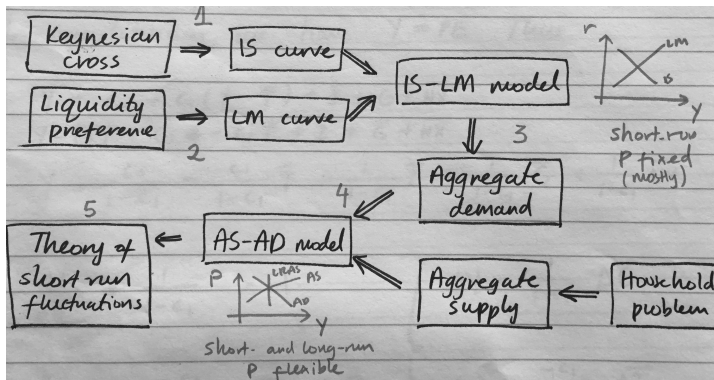 1
Keynesian
cross
IS curve
Liquidity
preference
LM curve
2
IS-LM model
r
LM
IS
Y
short-run
P fixed
(mostly)
3
Aggregate
demand
4
5
Theory of
short run
fluctuations
AS-AD model
P
LRAS
AS
AD
Y
short- and long-run
P flexible
Aggregate
supply
Household
problem